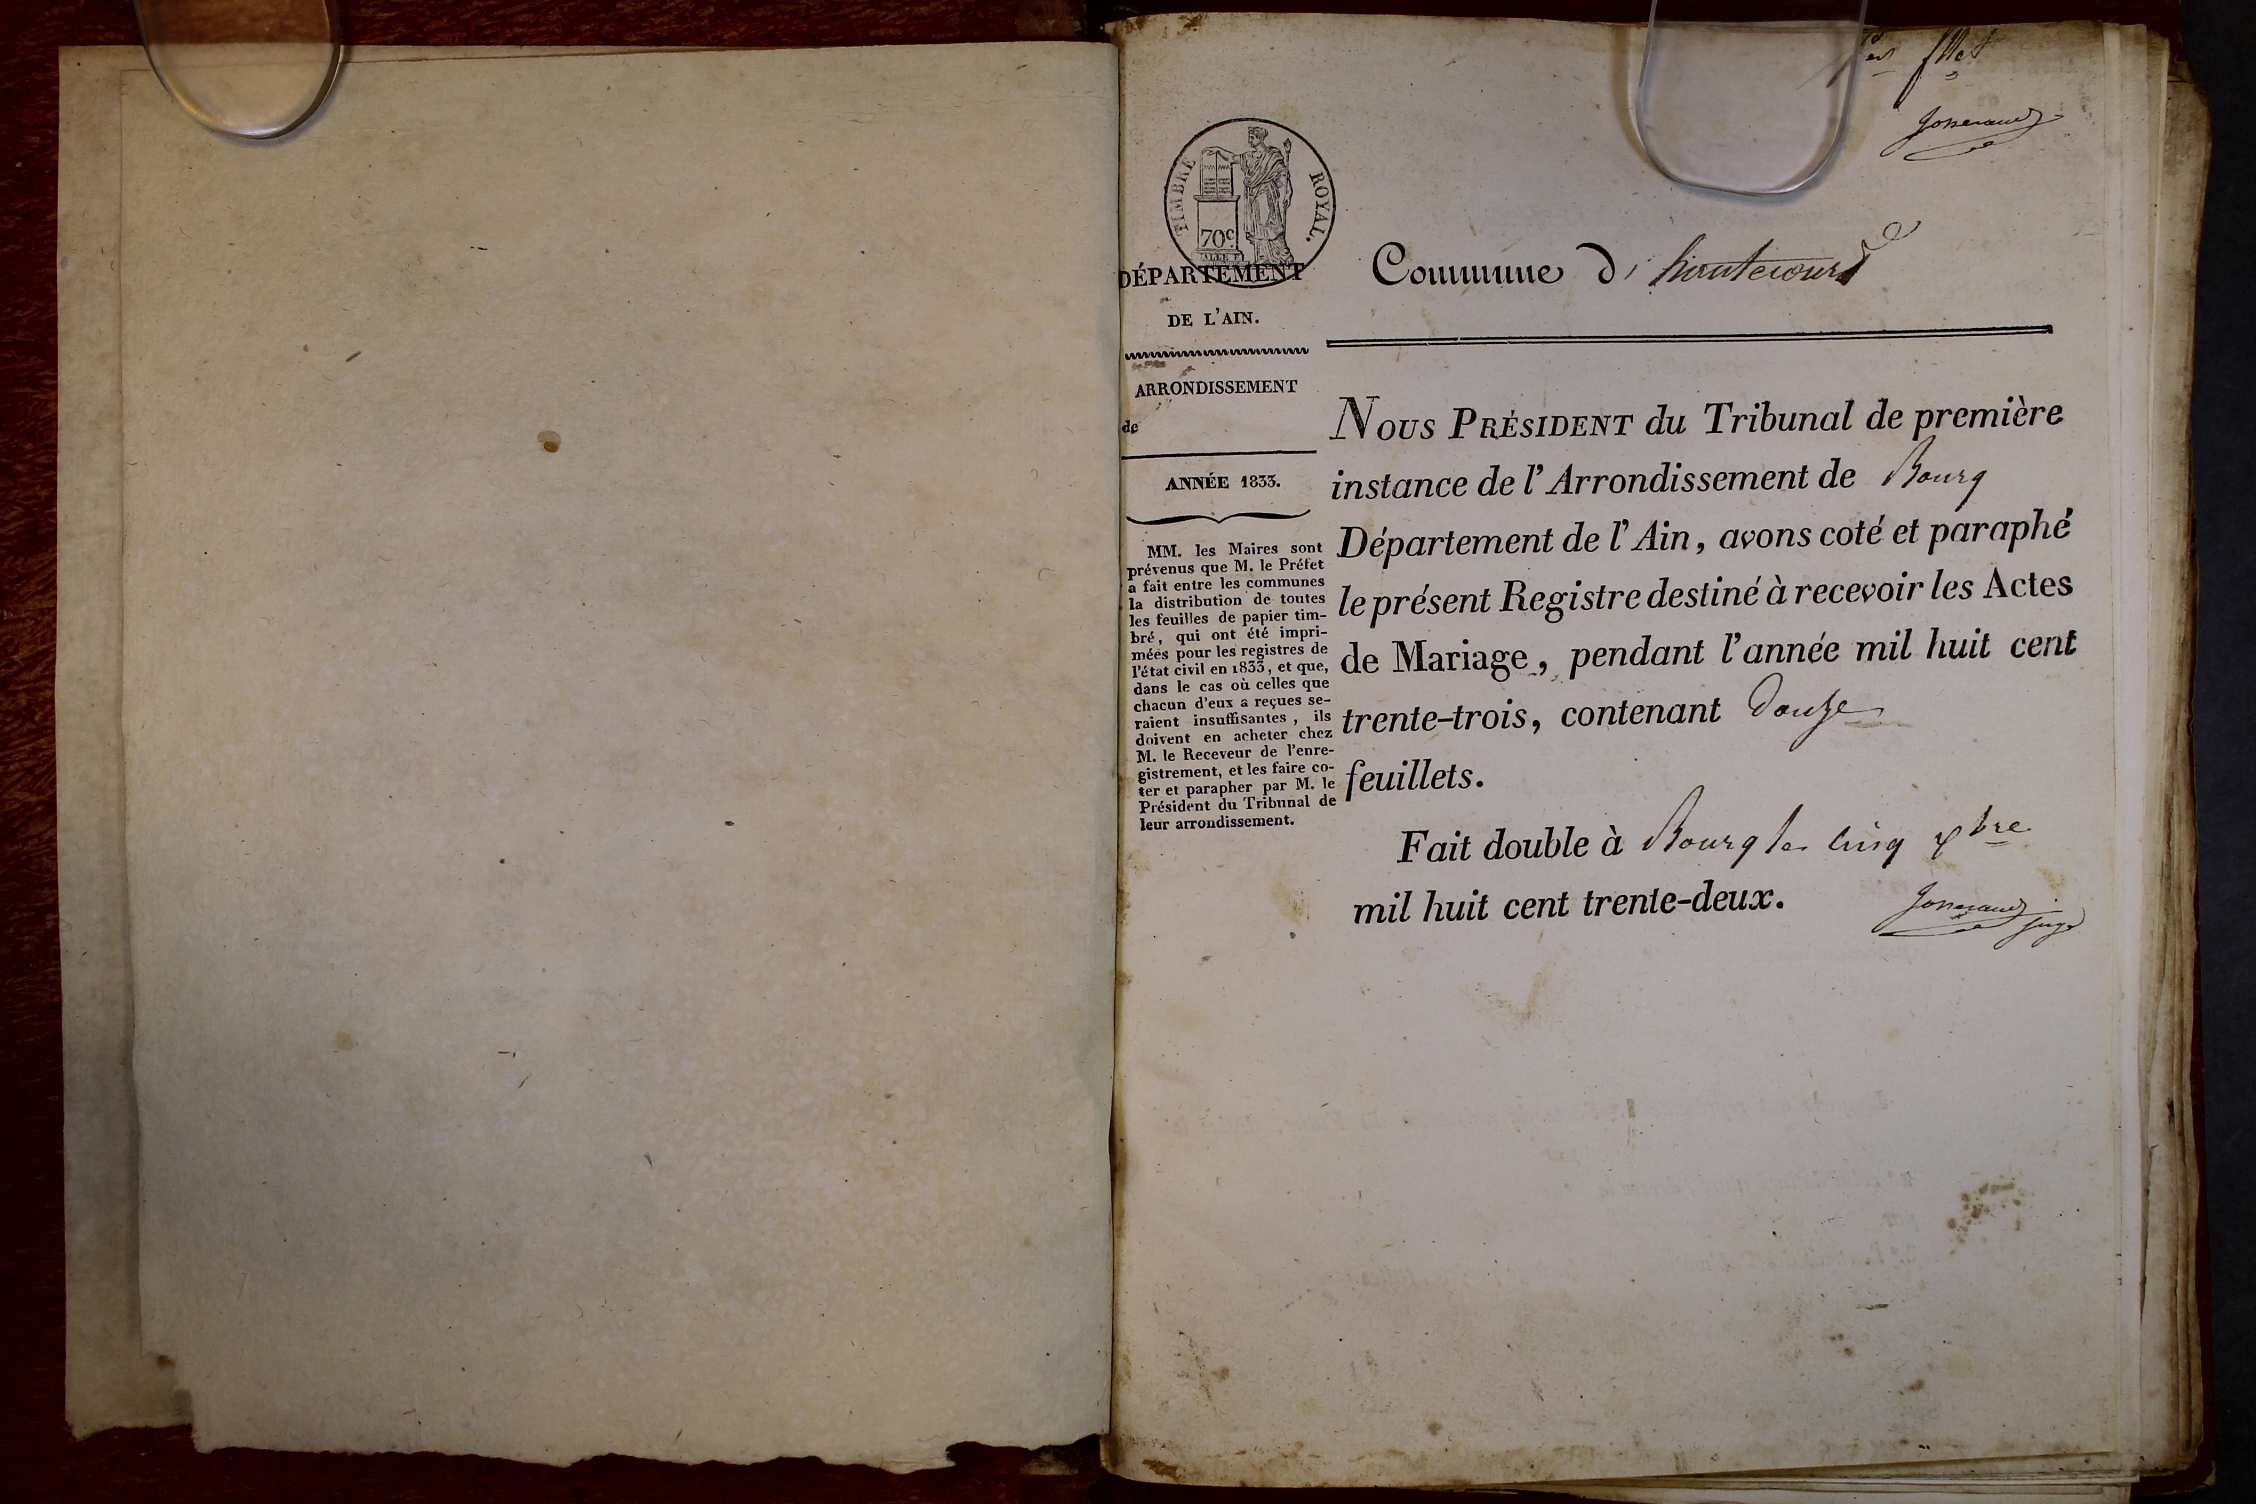 1er fllet
Josserand
TIMBRE ROYAL.
70c
DÉPARTEMENT
DE L'AIN.
ARRONDISSEMENT
de
ANNÉE 1833.
MM. les Maires sont
prévenus que M. le Préfet
a fait entre les communes
la distribution de toutes
les feuilles de papier tim-
bré, qui ont été impri-
mées pour les registres de
l'état civil en 1833, et que,
dans le cas où celles que
chacun d'eux a reçues se-
raient insuffisantes, ils
doivent en acheter chez
M. le Receveur de l'enre-
gistrement, et les faire co-
ter et parapher par M. le
Président du Tribunal de
leur arrondissement.
Commune d' hautecourt
NOUS PRÉSIDENT du Tribunal de première
instance de l'Arrondissement de Bourg
Département de l'Ain, avons coté et paraphé
le présent Registre destiné à recevoir les Actes
de Mariage, pendant l'année mil huit cent
trente-trois, contenant Douze
feuillets.
Fait double à Bourg le cinq xbre
mil huit cent trente-deux.
Josserand
juge